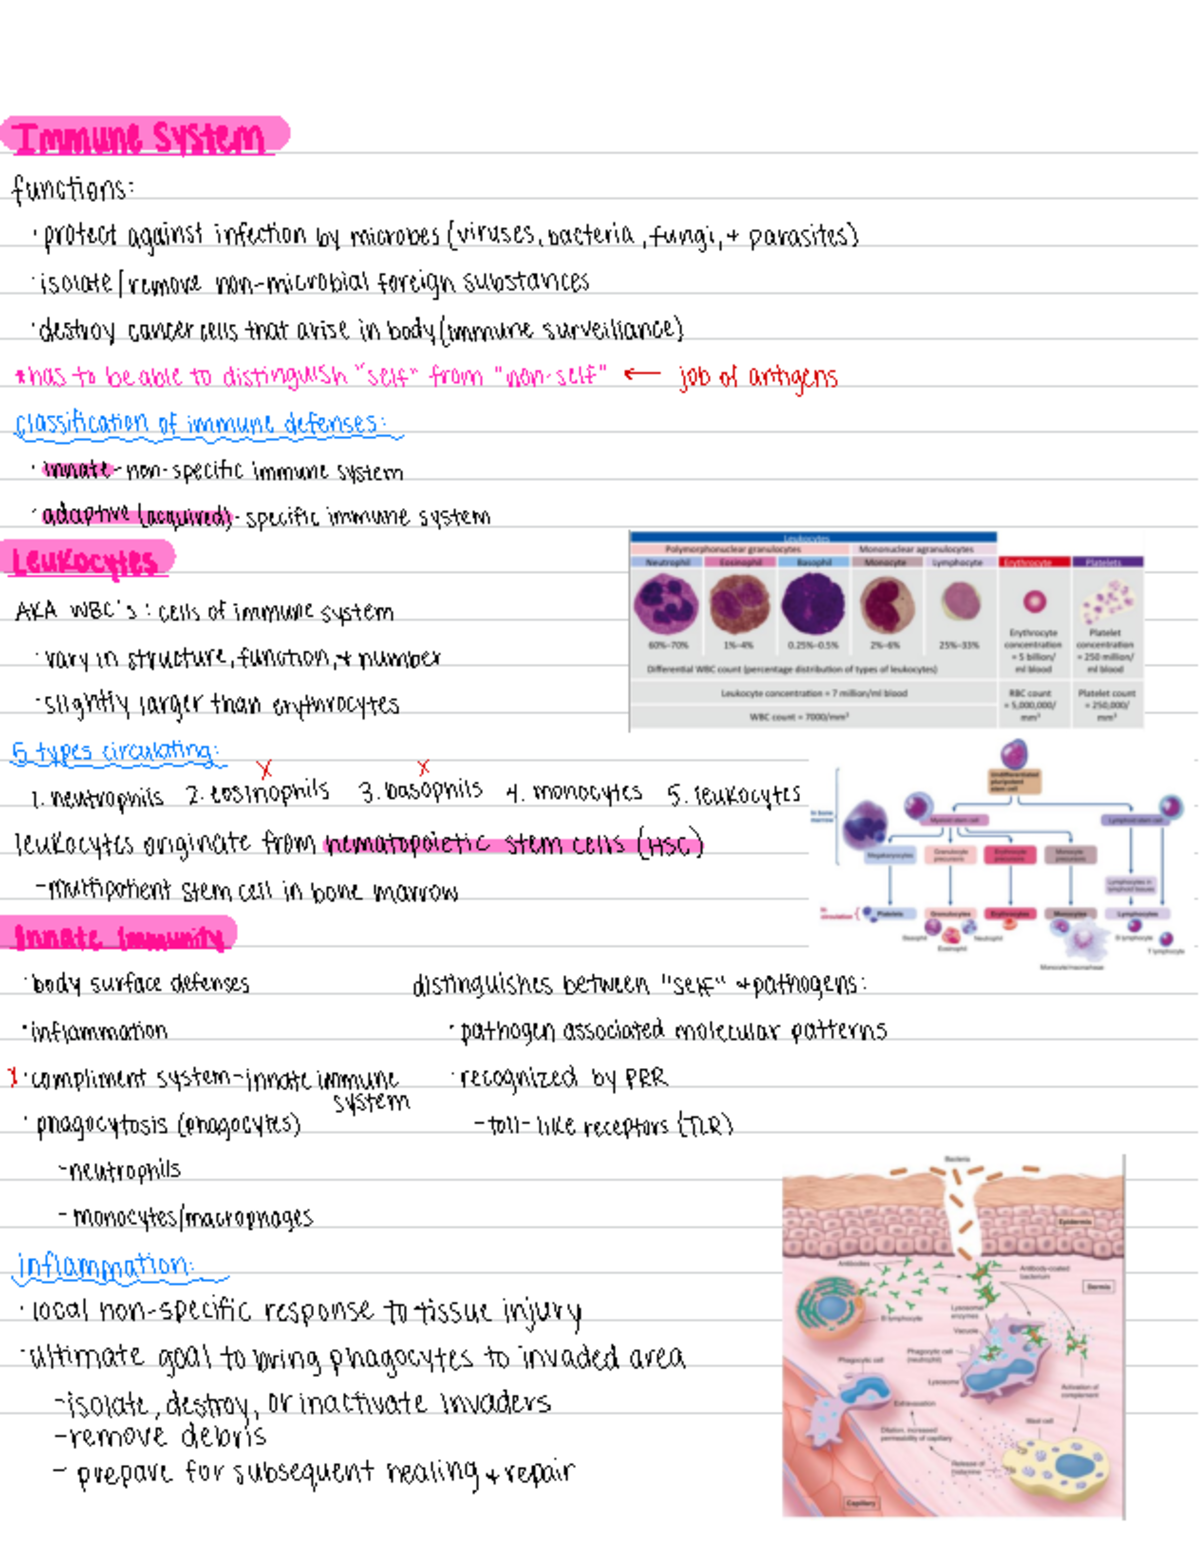 Immune System
functions:
· protect against infection by microbes (viruses, bacteria, fungi, + parasites)
· isolate/remove non-microbial foreign substances
· destroy cancer cells that arise in body (immune surveillance)
*has to be able to distinguish "self" from "non-self" ← job of antigens
classification of immune defenses:
· innate - non-specific immune system
· adaptive (acquired) - specific immune system
Leukocytes
AKA WBC's: cells of immune system
· vary in structure, function, + number
· slightly larger than erythrocytes
Leukocytes
Polymorphonuclear granulocytes Mononuclear agranulocytes
Neutrophil Eosinophil Basophil Monocyte Lymphocyte Erythrocyte Platelets
60%–70% 1%–4% 0.25%–0.5% 2%–6% 25%–33%
Erythrocyte concentration = 5 billion/ ml blood
Platelet concentration = 250 million/ ml blood
Differential WBC count (percentage distribution of types of leukocytes)
Leukocyte concentration = 7 million/ml blood
RBC count = 5,000,000/ mm³
Platelet count = 250,000/ mm³
WBC count = 7000/mm³
5 types circulating:
x x
1. neutrophils 2. eosinophils 3. basophils 4. monocytes 5. leukocytes
leukocytes originate from hematopoietic stem cells (HSC)
-multipotient stem cell in bone marrow
Undifferentiated pluripotent stem cell
In bone marrow
Myeloid stem cell Lymphoid stem cell
Megakaryocytes Granulocyte precursors Erythrocyte precursors Monocyte precursors
Lymphocytes in lymphoid tissues
In circulation
Platelets Granulocytes Erythrocytes Monocytes Lymphocytes
Basophil Neutrophil B lymphocyte
Eosinophil T lymphocyte
Monocyte/macrophage
Innate Immunity
· body surface defenses
· inflammation
x · compliment system-innate immune
system
· phagocytosis (phagocytes)
-neutrophils
- monocytes/macrophages
distinguishes between "self" + pathogens:
· pathogen associated molecular patterns
· recognized by PRR
-toll-like receptors (TLR)
inflammation:
· local non-specific response to tissue injury
· ultimate goal to bring phagocytes to invaded area
-isolate, destroy, or inactivate invaders
-remove debris
- prepare for subsequent healing + repair
Bacteria
Epidermis
Antibodies
Antibody-coated bacterium
Dermis
Lysosome enzymes
B lymphocyte
Vacuole
Phagocytic cell (neutrophil)
Phagocytic cell
Lysosome
Activation of complement
Extravasation
Mast cell
Dilation, increased permeability of capillary
Release of histamine
Capillary